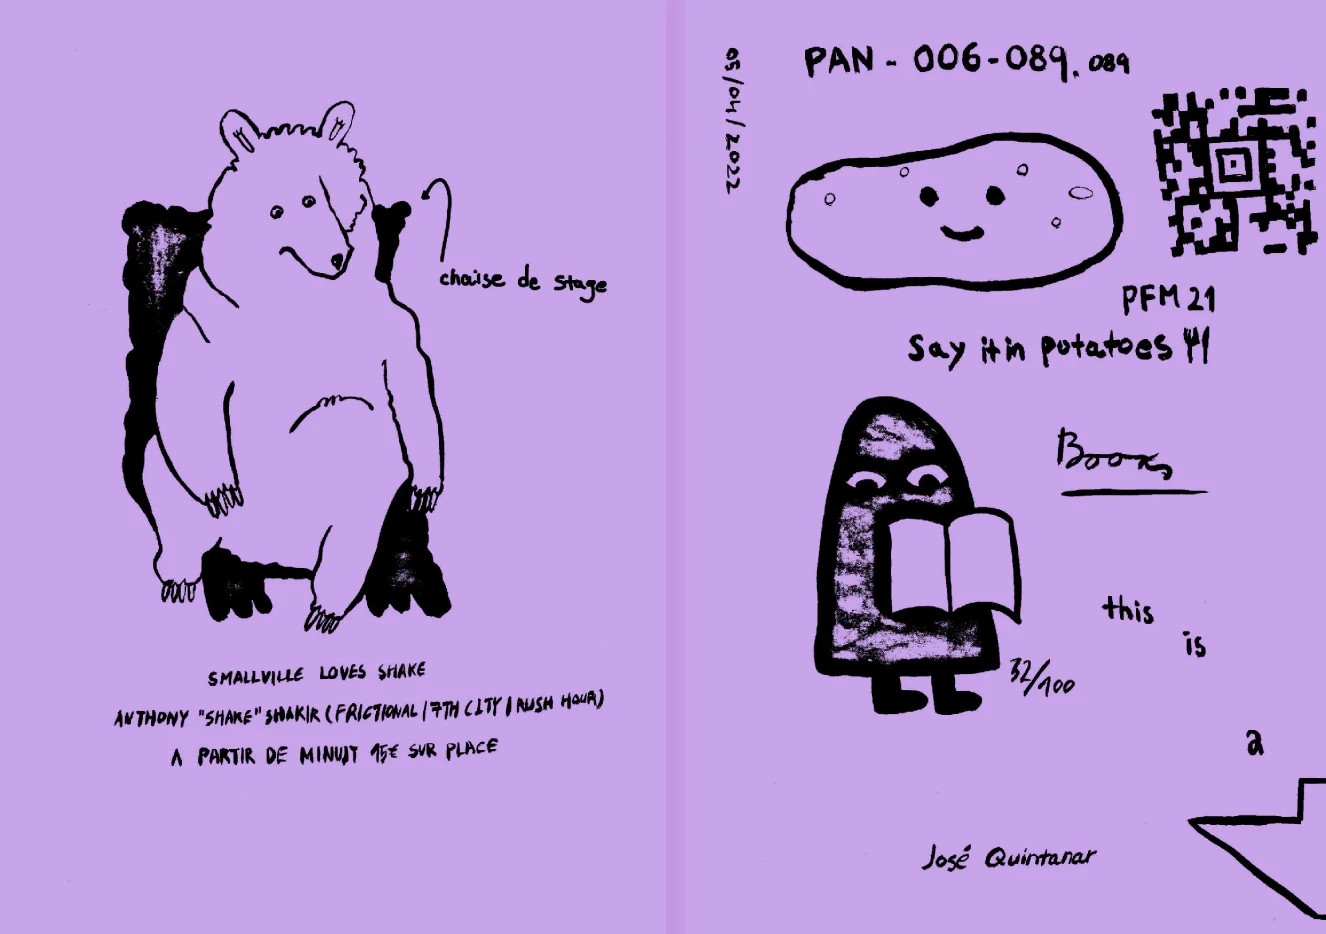 chaise de stage
SMALLVILLE LOVES SHAKE
ANTHONY "SHAKE" SHAKIR (FRICTIONAL / 7TH CITY / RUSH HOUR)
A PARTIR DE MINUIT 15€ SUR PLACE
05/04/2022
PAN - 006-089.089
PFM 21
Say it in potatoes
Books
this
is
32/100
a
José Quintanar